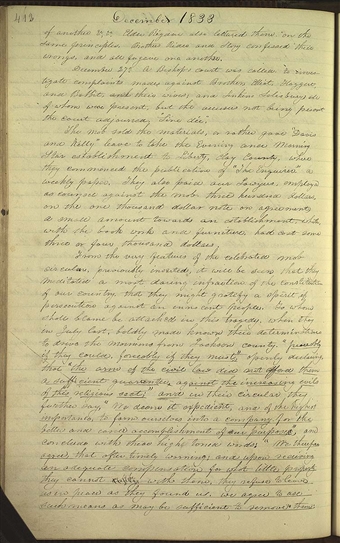 413 December 1833
of another &c. Elder Rigdon also lectured them on the
same principles. Brother Rider and Story confessed their
wrongs, and all forgave one another.
December 27th A Bishop's court was called to inves-
tigate complaints made against Brother Eliot, Haggart
and Babbit, and their wives, and
of whom were present, but the accusers not being present
the court adjourned, "sine die."
The mob sold the materials, or rather gave "Davis
and Kelly" leave to take the Evening and Morning
Star establishment to Liberty, Clay County, where
they commenced the publication of "The Enquirer" a
weekly paper. They also paid our lawyers, employed
as counsel against the mob three hundred dollars,
on the one thousand dollar note on agreement,
a small amount towards an establishment which
with the book work and furniture had cost some
three or four thousand dollars.
From the very features of the celebrated mob
circular, previously inserted, it will be seen that they
meditated a most daring infraction of the constitution
of our country, that they might gratify a spirit of
persecution against an innocent people. To whom
shall blame be attached in this tragedy, when they
in July last, boldly made known their determination
to drive the mormons from Jackson county, "peaceably
if they could, forcibly if they must," openly declaring,
that "the arm of the civil law did not afford them
a sufficient guarantee against the increasing evils
of this religious sect;" and in their circular they
further say, "We deem it expedient, and of the highest
importance, to form ourselves into a company for the
better and easier accomplishment of our purposes," and
conclude with these high toned words; "We therefore
agree, that after timely warning, and upon receiving
an adequate compensation for what little property
they cannot with them, they refuse to leave
us in peace as they found us, we agree to use
such means as may be sufficient to remove them